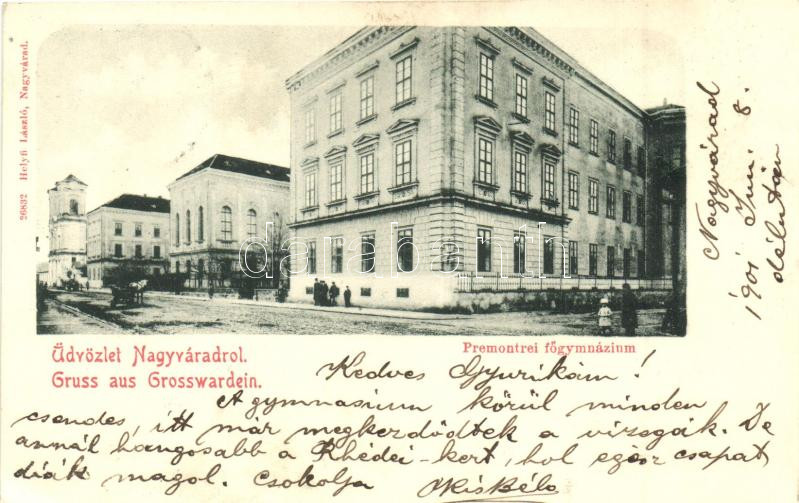 26832 Helyfi László, Nagyvárad.
darabanth
Üdvözlet Nagyváradrol.
Gruss aus Grosswardein.
Premontrei főgymnázium
Nagyvárad
1901 Juni 8.
délután
Kedves Gyurikám!
A gymnasium körül minden
csendes, itt már megkezdődtek a vizsgák. De
annál hangosabb a Rhédei-kert, hol egész csapat
diák magol. Csokolja
Kis Béla